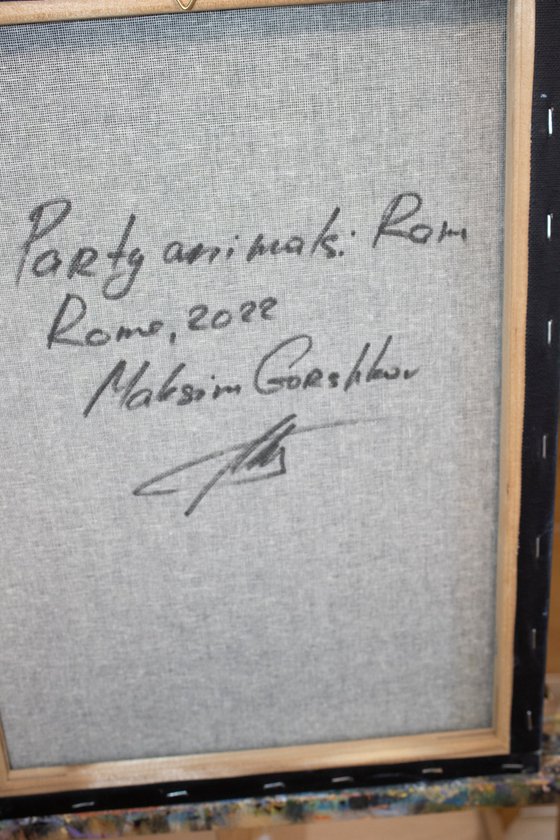 Party animals: Ram
Rome, 2022
Maksim Gorshkov